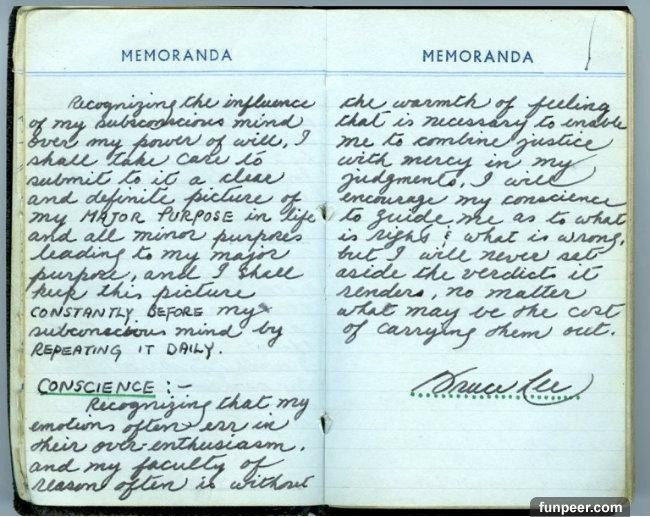 MEMORANDA
Recognizing the influence
of my subconscious mind
over my power of will, I
shall take care to
submit to it a clear
and definite picture of
my MAJOR PURPOSE in life
and all minor purposes
leading to my major
purpose, and I shall
keep this picture
CONSTANTLY BEFORE my
subconscious mind by
REPEATING IT DAILY.
CONSCIENCE :-
Recognizing that my
emotions often err in
their over-enthusiasm,
and my faculty of
reason often is without
MEMORANDA
the warmth of feeling
that is necessary to enable
me to combine justice
with mercy in my
judgments, I will
encourage my conscience
to guide me as to what
is right & what is wrong,
but I will never set
aside the verdicts it
renders, no matter
what may be the cost
of carrying them out.
Bruce Lee
funpeer.com